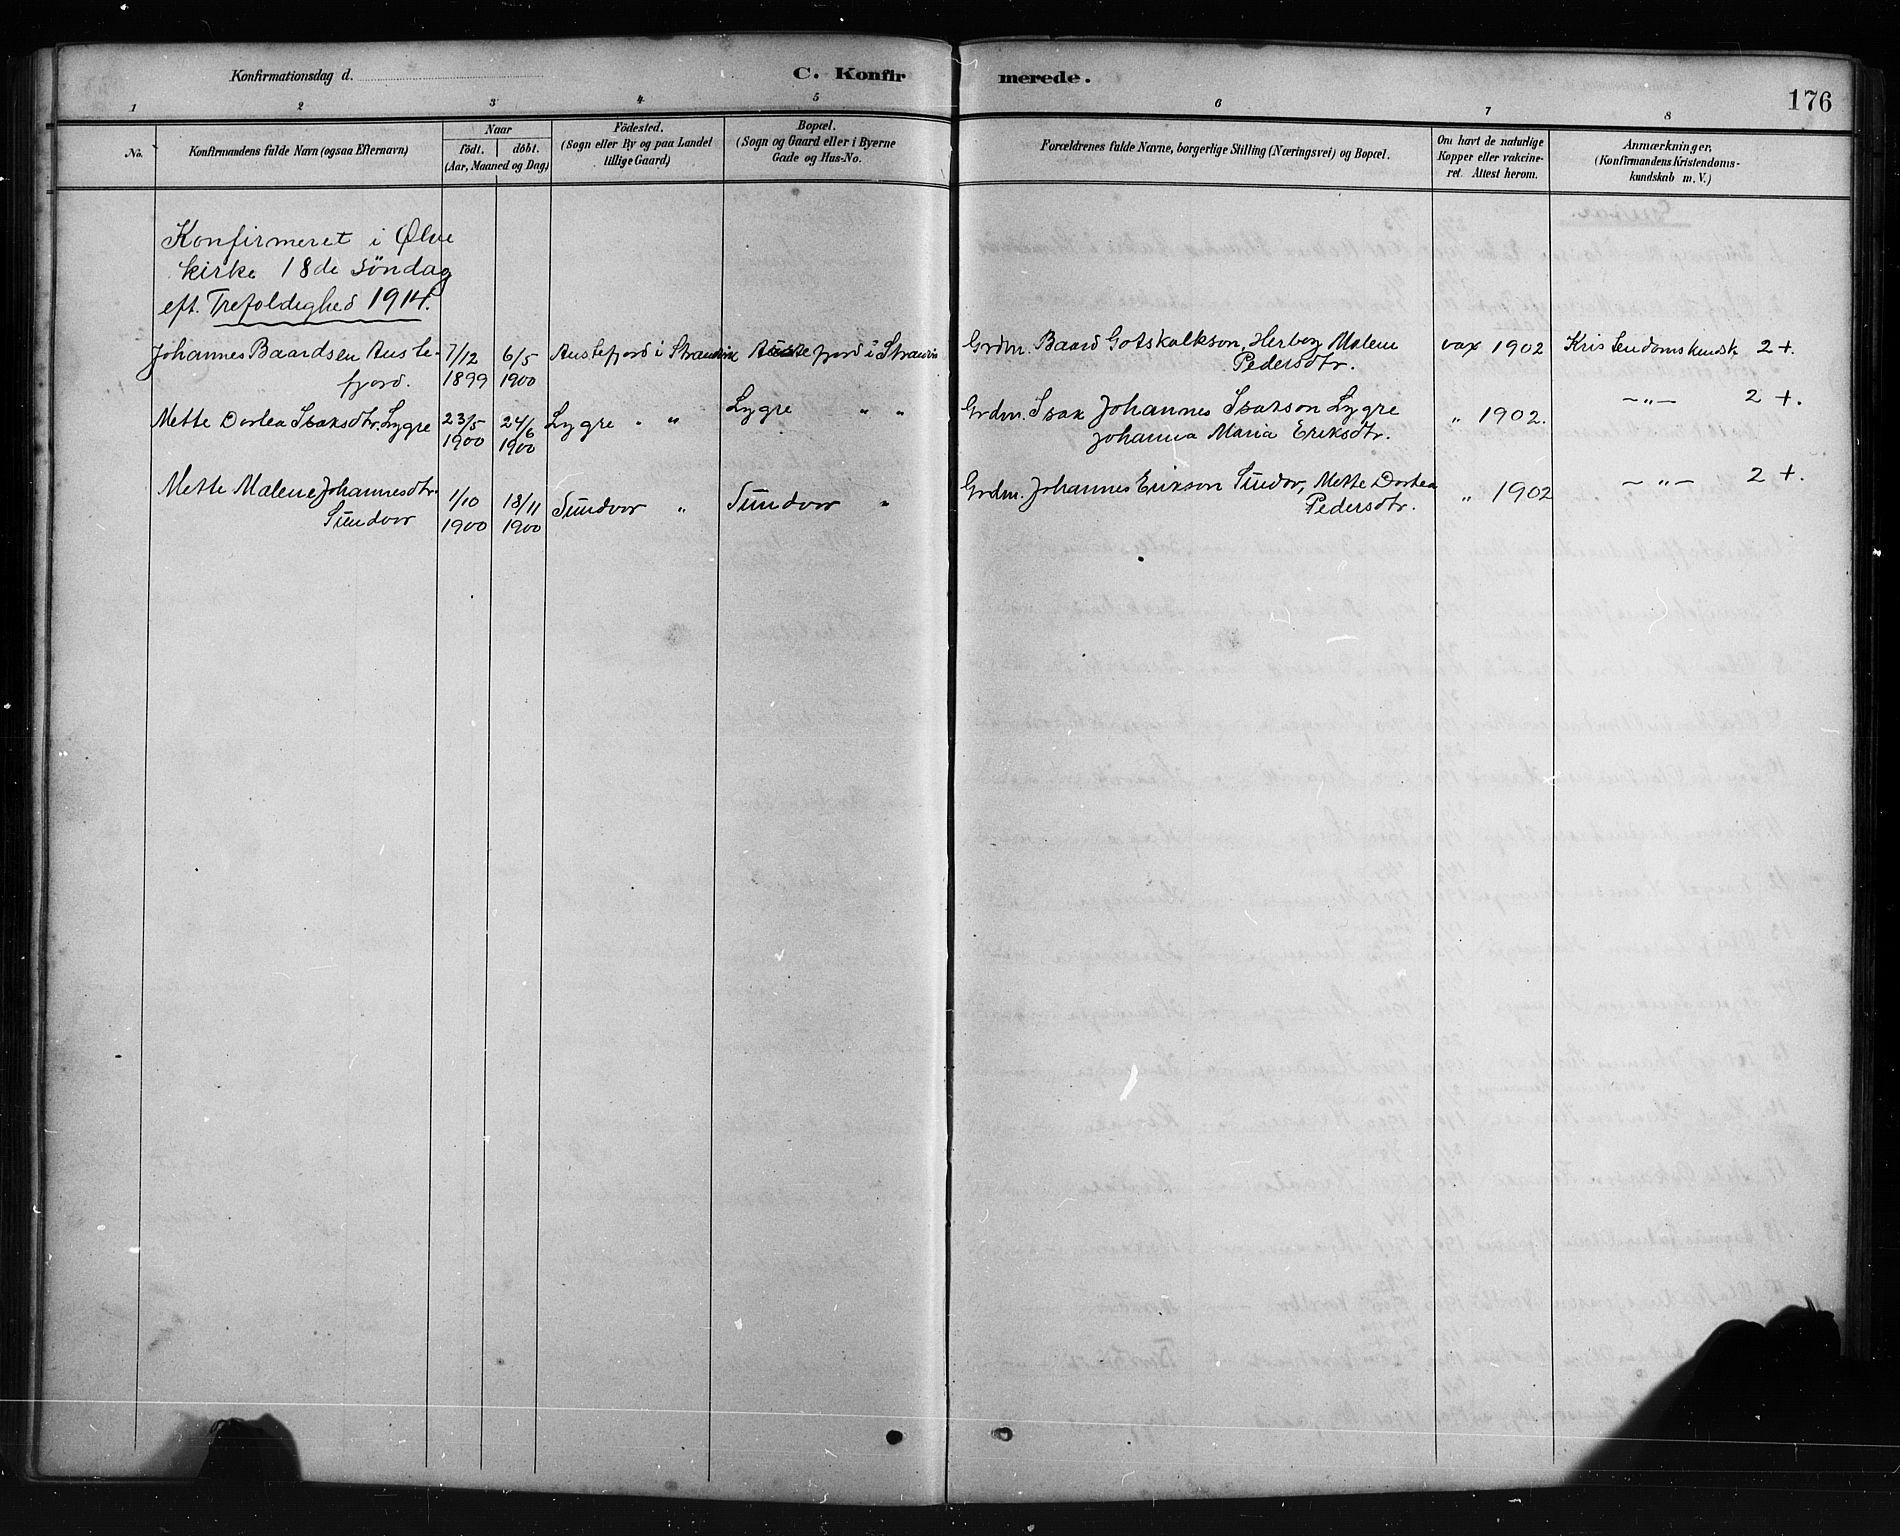 Konfirmationsdag d. C. Konfir merede. 176
1 2 3 4 5 6 7 8
No. Konfirmandens fulde Navn (ogsaa Efternavn) Naar födt. döbt. (Aar, Maaned og Dag) Födested. (Sogn eller By og paa Landet tillige Gaard) Bopæl. (Sogn og Gaard eller i Byerne Gade og Hus-No. Forældrenes fulde Navne, borgerlige Stilling (Næringsvei) og Bopæl. Om havt de naturlige Kopper eller vakcineret. Attest herom. Anmærkninger. (Konfirmandens Kristendomskundskab m. V.)
Konfirmeret i Ølve
kirke 18de Søndag
eft. Trefoldighed 1914.
Johannes Baardsen Auste- 7/12 6/5 Austefjord i Strandvik Austefjord i Strandvik Grdm. Baard Gotskalkson, Herborg Malene vax 1902 Kristendomskundsk 2+.
fjord. 1899 1900 Pedersdtr.
Mette Dortea Isaksdtr. Lygre 23/5 24/6 Lygre " " Lygre " " Grdm. Isak Johannes Isakson Lygre " 1902. -"- 2+.
1900 1900 Johanna Maria Eriksdtr.
Mette Malene Johannesdtr. 1/10 18/11 Sundvor " Sundvor " Grdm. Johannes Erikson Sundvor, Mette Dortea " 1902 -"- 2+.
Sundvor 1900 1900 Pedersdtr.